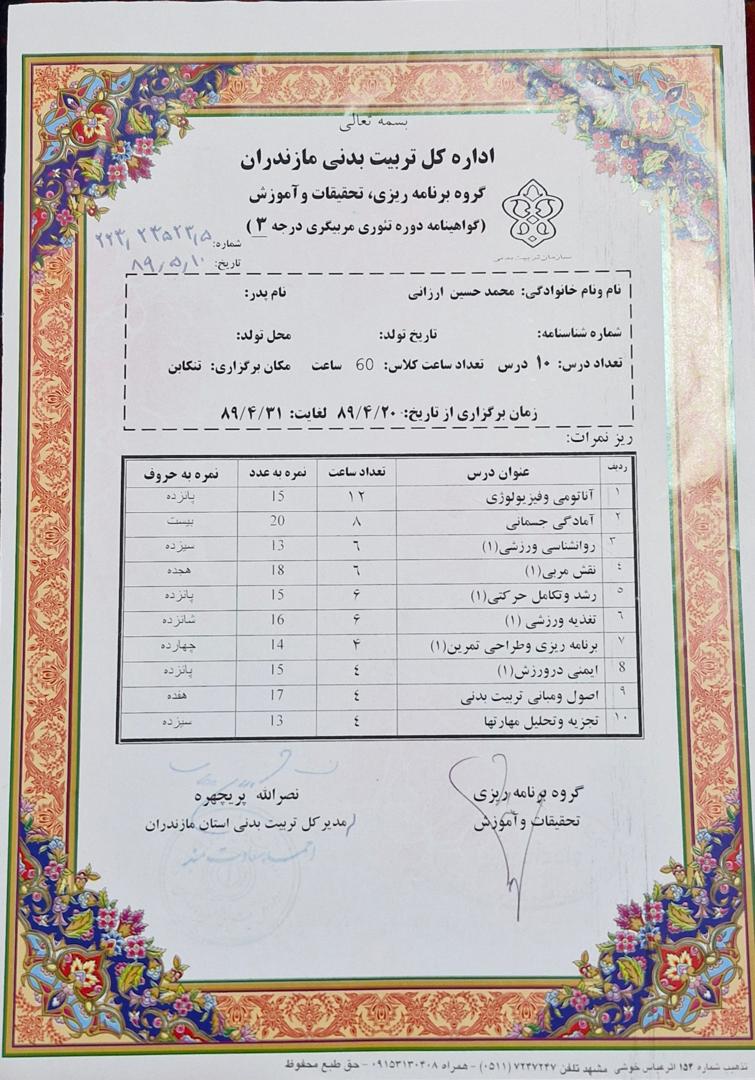 بسمه تعالی
اداره کل تربیت بدنی مازندران
گروه برنامه ریزی، تحقیقات و آموزش
(گواهینامه دوره تئوری مربیگری درجه ۳)
سازمان تربیت بدنی
شماره:
تاریخ: ۸۹٫۵٫۱۰
نام ونام خانوادگی: محمد حسین ارزانی نام پدر:
شماره شناسنامه: تاریخ تولد: محل تولد:
تعداد درس: ۱۰ درس تعداد ساعت کلاس: 60 ساعت مکان برگزاری: تنکابن
زمان برگزاری از تاریخ: ۸۹/۴/۲۰ لغایت: ۸۹/۴/۳۱
ریز نمرات:
ردیف عنوان درس تعداد ساعت نمره به عدد نمره به حروف
۱ آناتومی وفیزیولوژی ۱۲ 15 پانزده
۲ آمادگی جسمانی ۸ 20 بیست
۳ روانشناسی ورزشی(۱) ٦ 13 سیزده
٤ نقش مربی(۱) ٦ 18 هجده
۵ رشد وتکامل حرکتی(۱) ۶ 15 پانزده
٦ تغذیه ورزشی (۱) ۶ 16 شانزده
۷ برنامه ریزی وطراحی تمرین(۱) ۴ 14 چهارده
8 ایمنی درورزش(۱) ٤ 15 پانزده
۹ اصول ومبانی تربیت بدنی ٤ 17 هفده
۱۰ تجزیه وتحلیل مهارتها ٤ 13 سیزده
گروه برنامه ریزی
تحقیقات وآموزش
نصرالله پریچهره
مدیر کل تربیت بدنی استان مازندران
تذهیب شماره ۱۵۴ اثر عباس خوشی مشهد تلفن ۷۲۴۷۲۴۷ (۰۵۱۱) - همراه ۰۹۱۵۳۱۳۰۴۰۸ - حق طبع محفوظ